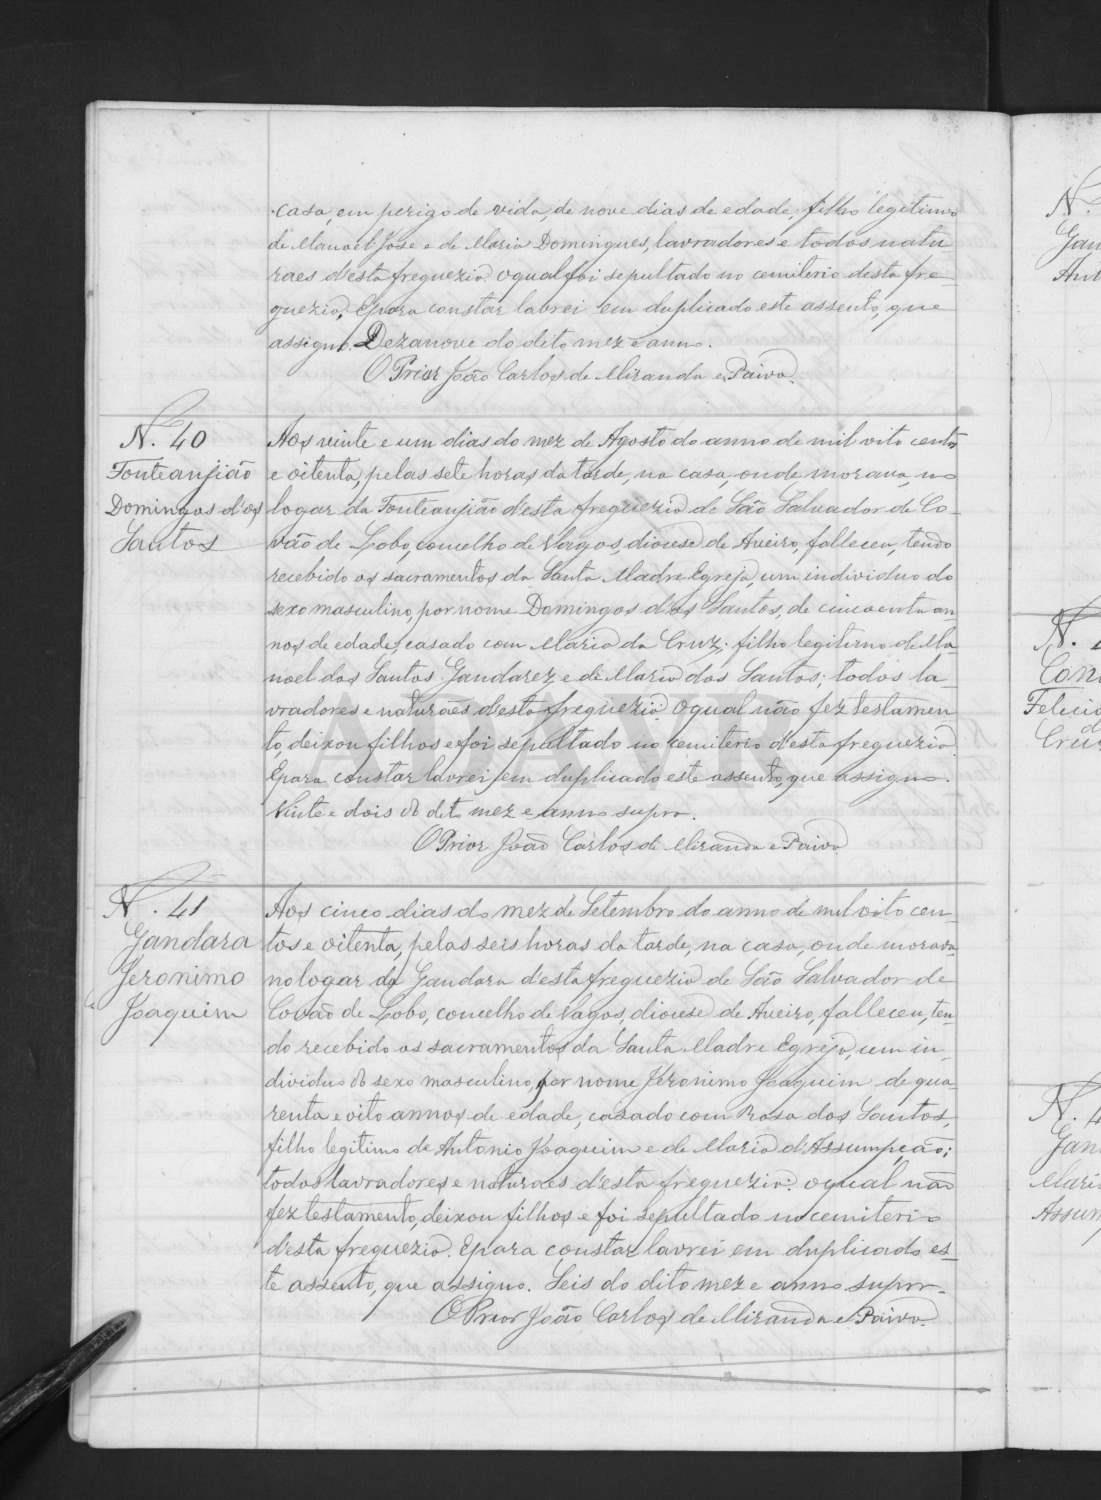 casa, em perigo de vida, de nove dias de edade, filho legitimo
de Manoel José e de Maria Domingues, lavradores e todos natu-
raes d'esta freguezia. o qual foi sepultado no cemiterio desta fre-
guezia. E para constar lavrei em duplicado este assento, que
assigno. Dezanove do dito mez e anno.
O Prior João Carlos de Miranda e Paiva.
N. 40
Fonteanjião
Domingos d'os
Santos
Aos vinte e um dias do mez de Agosto do anno de mil oito centos
e oitenta, pelas sete horas da tarde, na casa, onde morava, no
logar da Fonteanjião d'esta freguezia de São Salvador de Co-
vão de Lobo, concelho de Vagos, diocese de Aveiro, falleceu, tendo
recebido os sacramentos da Santa Madre Egreja, um individuo do
sexo masculino, por nome Domingos dos Santos, de cincoenta an-
nos de edade, casado com Maria da Cruz; filho legitimo de Ma-
noel dos Santos Gandarez e de Maria dos Santos; todos la-
vradores e naturaes d'esta freguezia. o qual não fez testamen-
to, deixou filhos e foi sepultado no cemiterio d'esta freguezia.
E para constar lavrei em duplicado este assento, que assigno.
Vinte e dois do dito mez e anno supra.
O Prior João Carlos de Miranda e Paiva
N. 41
Gandara
Jeronimo
Joaquim
Aos cinco dias do mez de Setembro do anno de mil oito cen-
tos e oitenta, pelas seis horas da tarde, na casa, onde morava
no logar da Gandara d'esta freguezia de São Salvador de
Covão de Lobo, concelho de Vagos, diocese de Aveiro, falleceu, ten-
do recebido os sacramentos da Santa Madre Egreja, um in-
dividuo do sexo masculino, por nome Jeronimo Joaquim de qua-
renta e oito annos de edade, casado com Rosa dos Santos,
filho legitimo de Antonio Joaquim e de Maria d'Assumpção;
todos lavradores e naturaes d'esta freguezia. o qual não
fez testamento, deixou filhos e foi sepultado no cemiterio
d'esta freguezia. E para constar lavrei em duplicado es-
te assento, que assigno. Seis do dito mez e anno supra.
O Prior João Carlos de Miranda e Paiva.
ADAVR
N.
Gan
N.
Felici
Cruz
N. 4
Gan
Mari
Assum